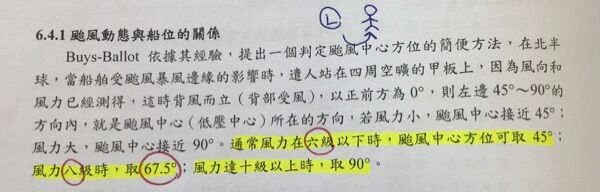 L
6.4.1 颱風動態與船位的關係
Buys-Ballot 依據其經驗，提出一個判定颱風中心方位的簡便方法，在北半
球，當船舶受颱風暴風邊緣的影響時，遣人站在四周空曠的甲板上，因為風向和
風力已經測得，這時背風而立（背部受風），以正前方為 0°，則左邊 45°～90°的
方向內，就是颱風中心（低壓中心）所在的方向，若風力小，颱風中心接近 45°；
風力大，颱風中心接近 90°。通常風力在六級以下時，颱風中心方位可取 45°；
風力八級時，取 67.5°；風力達十級以上時，取 90°。